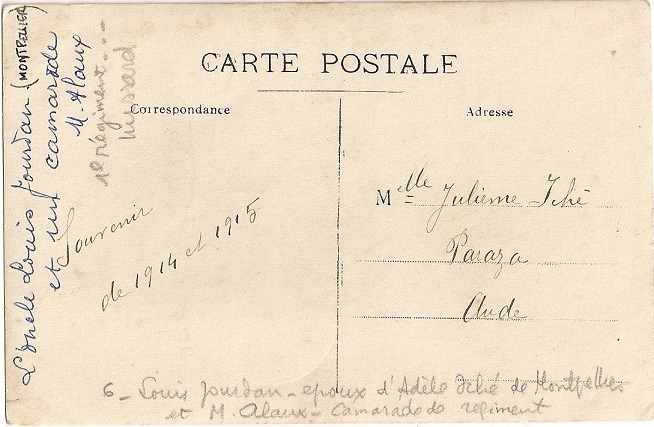 CARTE POSTALE
Correspondance
Adresse
L'oncle Louis Jourdan (MONTPELLIER)
et un camarade
M. Alaux
1e régiment...
hussard
Souvenir
de 1914 et 1915
Mlle Julienne Iché
Paraza
Aude
6 - Louis Jourdan - epoux d'Adèle Iché de Montpellier
et M. Alaux - Camarade de regiment